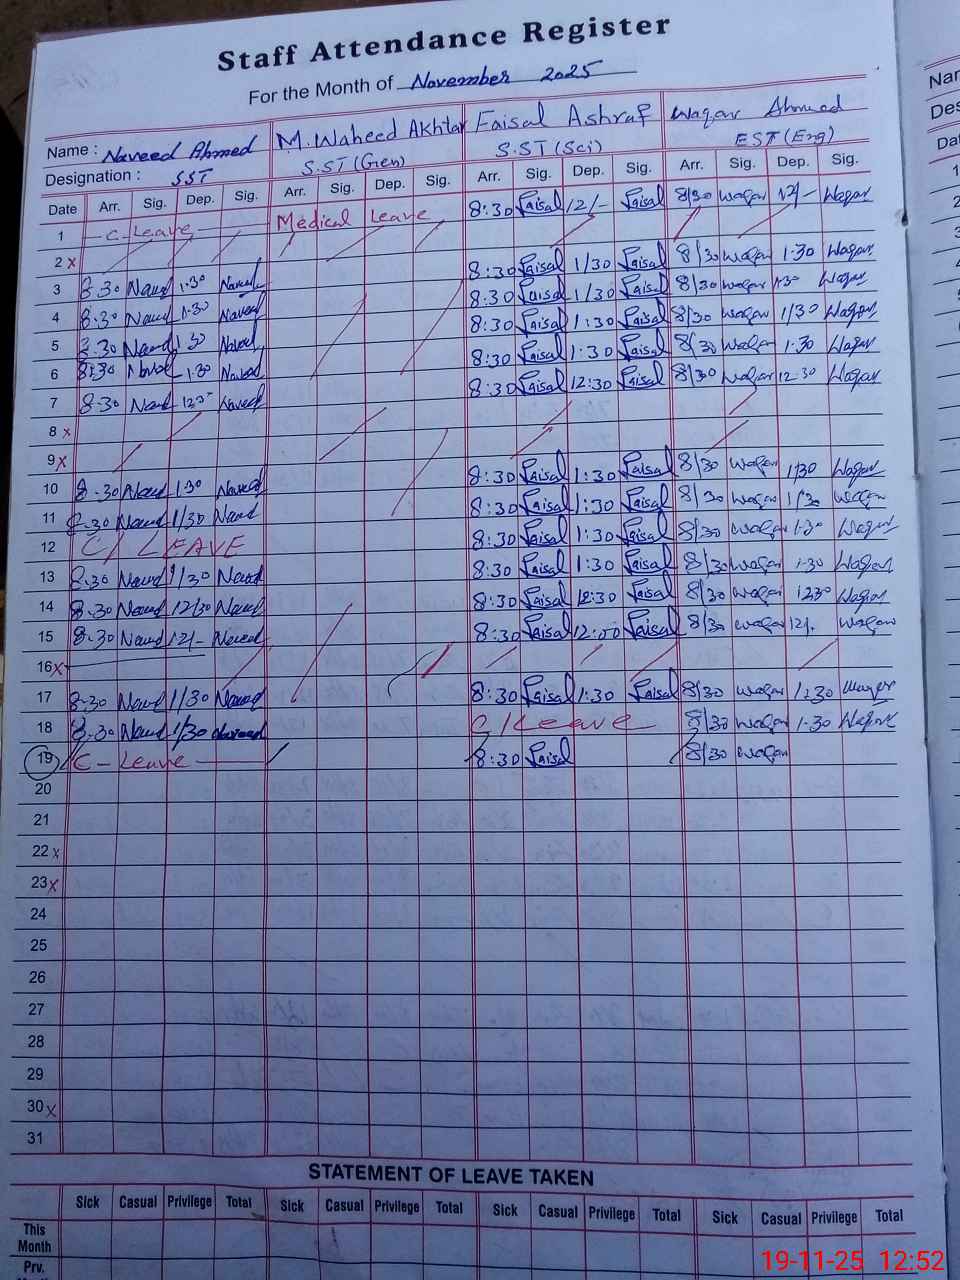 Staff Attendance Register
For the Month of November 2025
Name : Naveed Ahmed M. Waheed Akhtar Faisal Ashraf Waqar Ahmed
Designation : SST S.ST (Gen) S.ST (Sci) EST (Eng)
Date Arr. Sig. Dep. Sig. Arr. Sig. Dep. Sig. Arr. Sig. Dep. Sig. Arr. Sig. Dep. Sig.
1 C-Leave Medical Leave 8:30 Faisal 12/- Faisal 8/30 Waqar 12/- Waqar
2 x
3 8.30 Naved 1.30 Naveed 8:30 Faisal 1/30 Faisal 8/30 Waqar 1.30 Waqar
4 8.30 Naved 1.30 Naveed 8:30 Faisal 1/30 Faisal 8/30 Waqar 1.30 Waqar
5 8.30 Naved 1.30 Naveed 8:30 Faisal 1:30 Faisal 8/30 Waqar 1/30 Waqar
6 8.30 Naved 1.30 Naveed 8:30 Faisal 1:30 Faisal 8/30 Waqar 1.30 Waqar
7 8.30 Naved 1230 Naveed 8:30 Faisal 12:30 Faisal 8/30 Waqar 12.30 Waqar
8 x
9 x
10 8.30 Naved 1.30 Naveed 8:30 Faisal 1:30 Faisal 8/30 Waqar 1/30 Waqar
11 8.30 Naved 1/30 Naved 8:30 Faisal 1:30 Faisal 8/30 Waqar 1/30 Waqar
12 C/ LEAVE 8:30 Faisal 1:30 Faisal 8/30 Waqar 1.30 Waqar
13 8.30 Naved 1/30 Naved 8:30 Faisal 1:30 Faisal 8/30 Waqar 1.30 Waqar
14 8.30 Naved 12/30 Naved 8:30 Faisal 12:30 Faisal 8/30 Waqar 1230 Waqar
15 8.30 Naved 12/- Naveed 8:30 Faisal 12:00 Faisal 8/30 Waqar 12/. Waqar
16 x
17 8.30 Naved 1/30 Naved 8:30 Faisal 1:30 Faisal 8/30 Waqar 1:30 Waqar
18 8.30 Naved 1/30 Naveed C/Leave 8/30 Waqar 1.30 Waqar
19 C-Leave 8:30 Faisal 8/30 Waqar
20
21
22 x
23 x
24
25
26
27
28
29
30 x
31
STATEMENT OF LEAVE TAKEN
Sick Casual Privilege Total Sick Casual Privilege Total Sick Casual Privilege Total Sick Casual Privilege Total
This
Month
Prv.
19-11-25 12:52